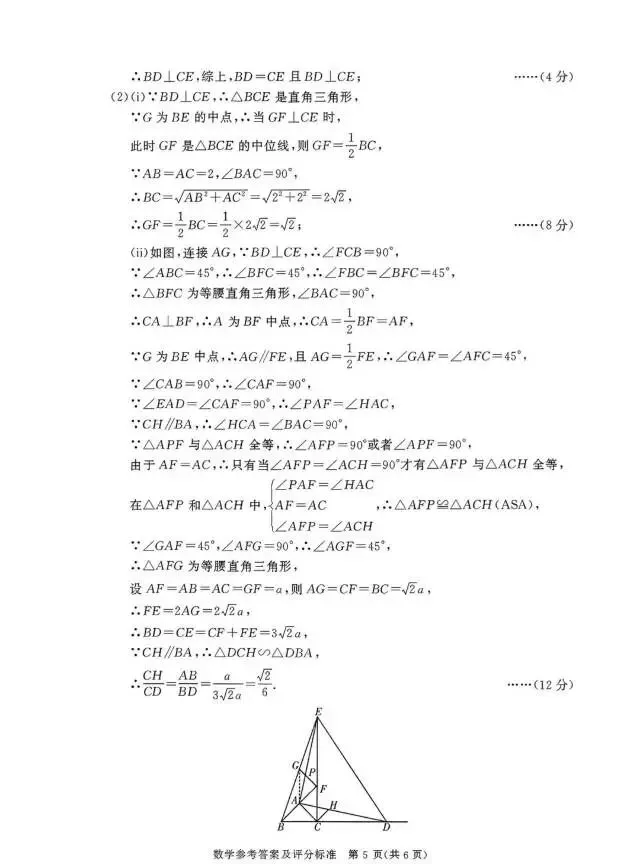 ∴BD⊥CE,综上,BD=CE 且 BD⊥CE; ……(4 分)
(2)(i)∵BD⊥CE,∴△BCE 是直角三角形,
∵G 为 BE 的中点,∴当 GF⊥CE 时,
此时 GF 是△BCE 的中位线,则 GF=1/2BC,
∵AB=AC=2,∠BAC=90°,
∴BC=√(AB²+AC²)=√(2²+2²)=2√2,
∴GF=1/2BC=1/2×2√2=√2; ……(8 分)
(ii)如图,连接 AG,∵BD⊥CE,∴∠FCB=90°,
∵∠ABC=45°,∴∠BFC=45°,∴∠FBC=∠BFC=45°,
∴△BFC 为等腰直角三角形,∠BAC=90°,
∴CA⊥BF,∴A 为 BF 中点,∴CA=1/2BF=AF,
∵G 为 BE 中点,∴AG∥FE,且 AG=1/2FE,∴∠GAF=∠AFC=45°,
∵∠CAB=90°,∴∠CAF=90°,
∵∠EAD=∠CAF=90°,∴∠PAF=∠HAC,
∵CH∥BA,∴∠HCA=∠BAC=90°,
∵△APF 与△ACH 全等,∴∠AFP=90°或者∠APF=90°,
由于 AF=AC,∴只有当∠AFP=∠ACH=90°才有△AFP 与△ACH 全等,
∠PAF=∠HAC
在△AFP 和△ACH 中,{AF=AC ,∴△AFP≌△ACH(ASA),
∠AFP=∠ACH
∵∠GAF=45°,∠AFG=90°,∴∠AGF=45°,
∴△AFG 为等腰直角三角形,
设 AF=AB=AC=GF=a,则 AG=CF=BC=√2a,
∴FE=2AG=2√2a,
∴BD=CE=CF+FE=3√2a,
∵CH∥BA,∴△DCH∽△DBA,
∴CH/CD=AB/BD=a/3√2a=√2/6. ……(12 分)
E
G
P
F
A
H
B C D
数学参考答案及评分标准 第 5 页(共 6 页)